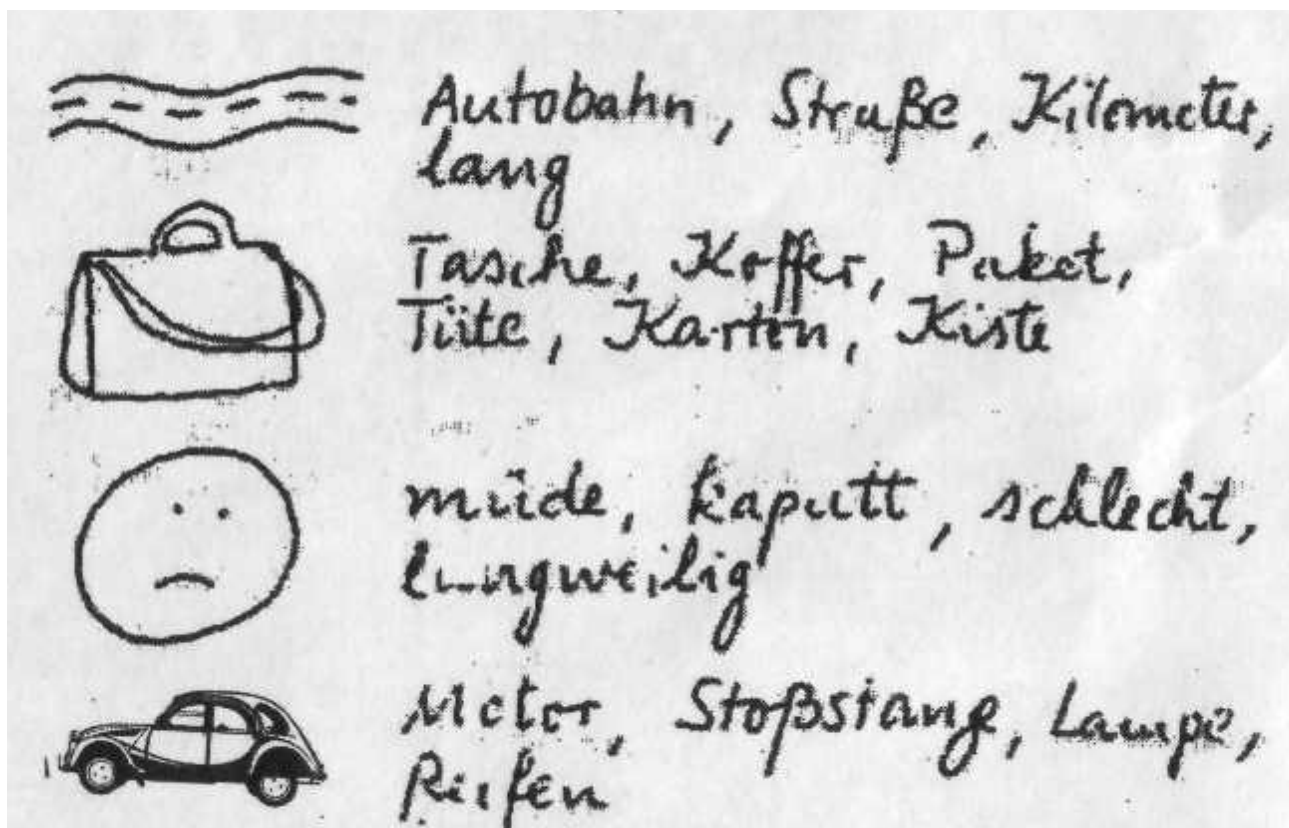 Autobahn, Straße, Kilometer,
lang
Tasche, Koffer, Paket,
Tüte, Karton, Kiste
müde, kaputt, schlecht,
langweilig
Motor, Stoßstange, Lampe,
Reifen